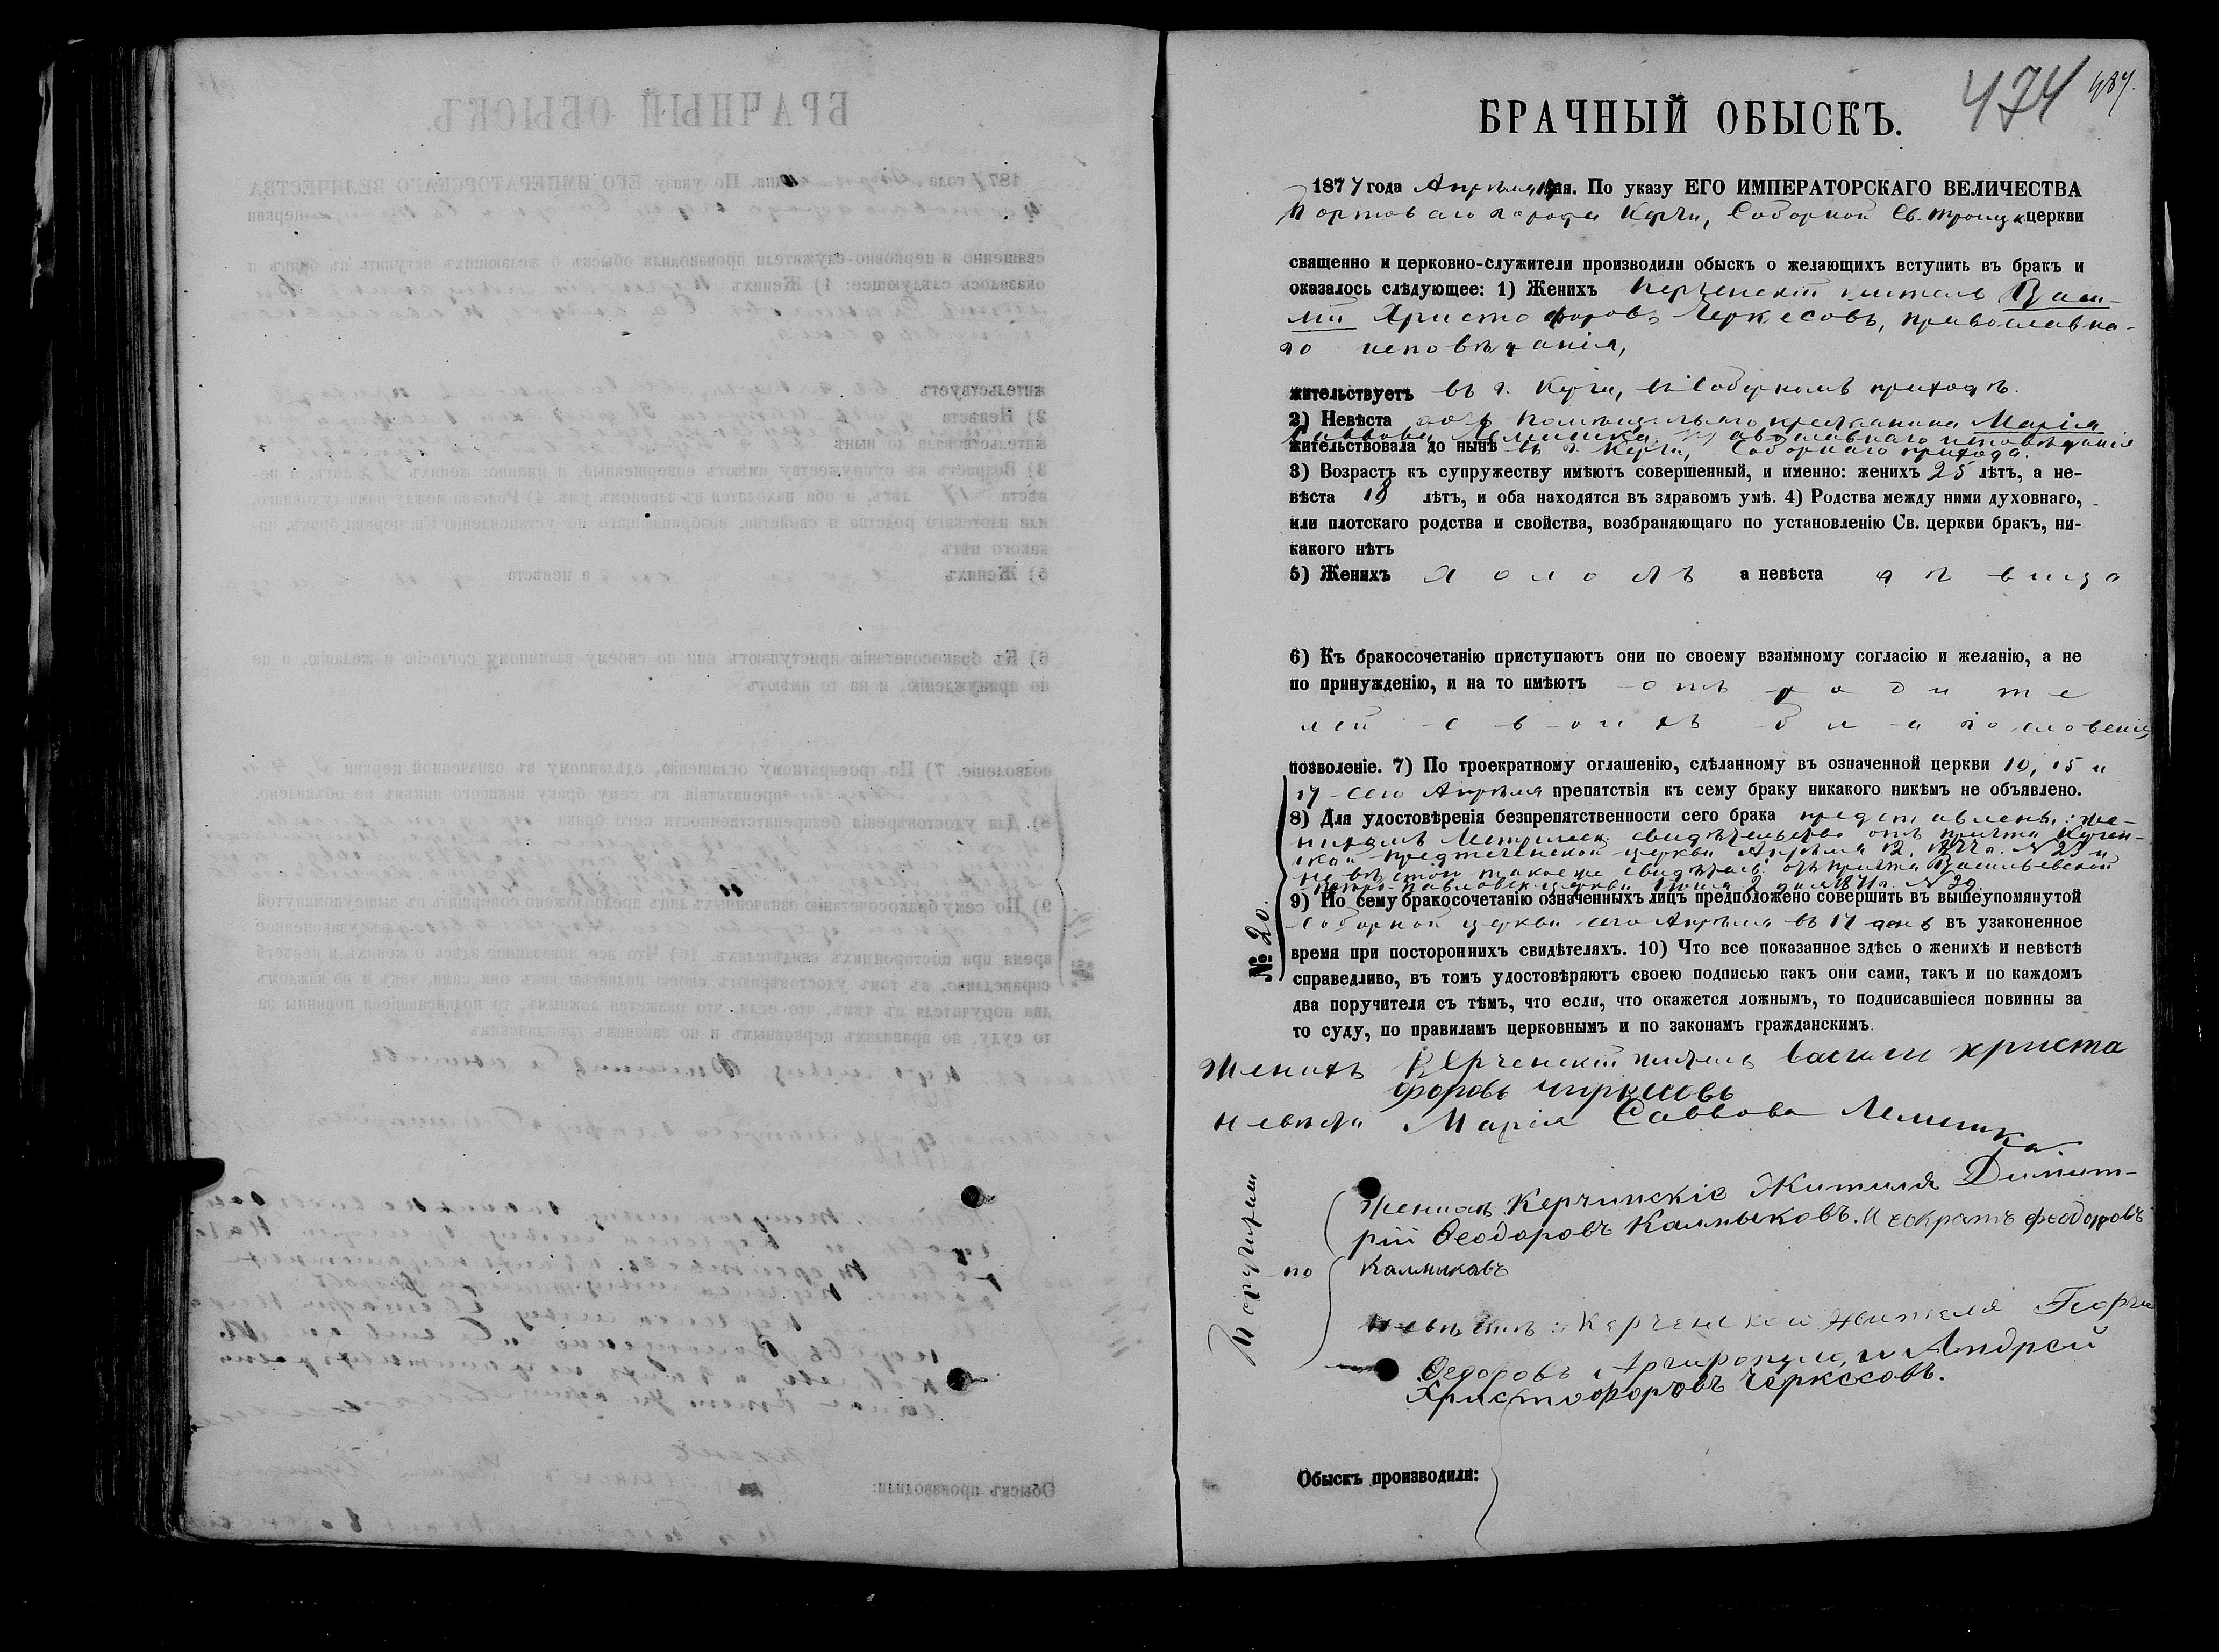 474 487.
БРАЧНЫЙ ОБЫСКЪ.
1877 года Апрѣля дня. По указу ЕГО ИМПЕРАТОРСКАГО ВЕЛИЧЕСТВА
Портоваго города Керчи, Соборной Св. Троицк церкви
священно и церковно-служители производили обыскъ о желающихъ вступить въ бракъ и
оказалось слѣдующее: 1) Женихъ Керченскій житель Васи-
лій Христофоровъ Черкесовъ, православна-
го исповѣданія,
жительствуетъ въ г. Керчи, въ Соборномъ приходѣ.
2) Невѣста дочь крестьянина Марія
Саввова Лемишка, православнаго исповѣданія
жительствовала до нынѣ въ г. Керчи, Соборнаго прихода.
3) Возрастъ къ супружеству имѣютъ совершенный, и именно: женихъ 25 лѣтъ, а не-
вѣста 18 лѣтъ, и оба находятся въ здравомъ умѣ. 4) Родства между ними духовнаго,
или плотскаго родства и свойства, возбраняющаго по установленію Св. церкви бракъ, ни-
какого нѣтъ
5) Женихъ холостъ а невѣста дѣвица
6) Къ бракосочетанію приступаютъ они по своему взаимному согласію и желанію, а не
по принужденію, и на то имѣютъ отъ родите
лей своихъ благословеніе
позволеніе. 7) По троекратному оглашенію, сдѣланному въ означенной церкви 10, 15 и
17 сего Апрѣля препятствія къ сему браку никакого никѣмъ не объявлено.
8) Для удостовѣренія безпрепятственности сего брака представлены: же-
нихомъ Метрическ. свидѣтельство отъ причта Керчен-
ской Предтеченской церкви Апрѣля 12, 1877 г. № 23 и
невѣстою такое же свидѣтель. отъ причта Васильевской
Петро-Павловск. церкви 2 дня № 29.
9) По сему бракосочетанію означенныхъ лицъ предположено совершить въ вышеупомянутой
Соборной церкви сего Апрѣля въ 17 день въ узаконенное
№ 20.
время при постороннихъ свидѣтеляхъ. 10) Что все показанное здѣсь о женихѣ и невѣстѣ
справедливо, въ томъ удостовѣряютъ своею подписью какъ они сами, такъ и по каждомъ
два поручителя съ тѣмъ, что если, что окажется ложнымъ, то подписавшіеся повинны за
то суду, по правиламъ церковнымъ и по законамъ гражданскимъ.
Женихъ Керченскій житель Василій христа
форовъ чиркесовъ
Невѣста Марія Саввова Лемишка
Поручители
по
Женихѣ Керчинскіе Жители Димит-
рій Феодоровъ Калмыковъ. И феодоровъ
Калмыковъ
Невѣстѣ: Керченскои жителя Георги
Федоровъ Аргиропуло, и Андрей
Христофоровъ Черкесовъ.
Обыскъ производили: